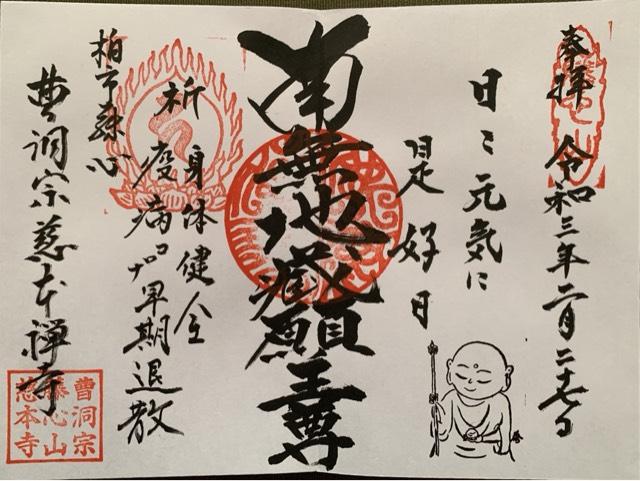 奉拝 令和三年二月二十七日
日々元気に
是好日
南無地蔵願王尊
身体健全
祈 疫病早期退散
柏市藤心
曹洞宗慈本禅寺
曹洞宗
藤心山
慈本寺